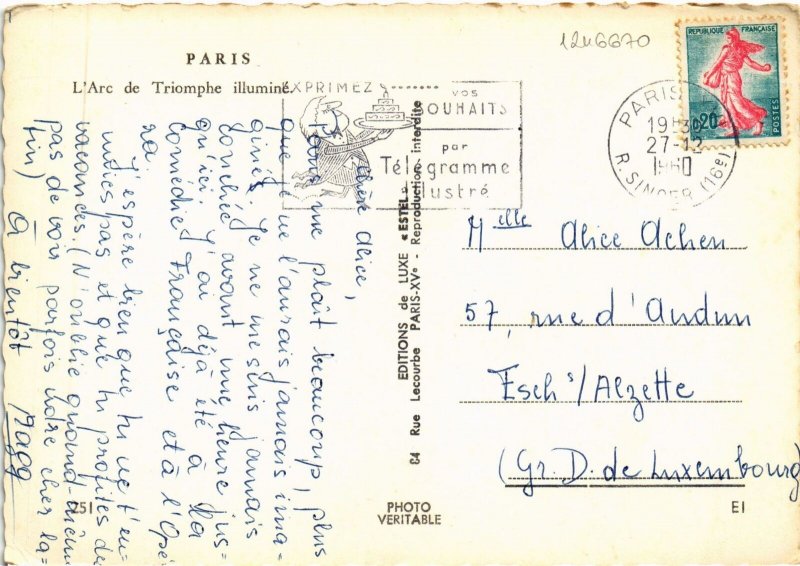 1246670
PARIS
L'Arc de Triomphe illuminé.
EXPRIMEZ
VOS
SOUHAITS
par
Télégramme
illustré
REPUBLIQUE FRANÇAISE
0,20
POSTES
PARIS
19H30
27-12
1960
R. SINGER (16e)
Chère Alice,
Paris me plaît beaucoup, plus
que je ne l'aurais jamais ima=
giné. Je ne me suis jamais
couchée avant une heure jus=
qu'ici. J'ai déjà été à la
Comédie Française et à l'Opé
ra.
J'espère bien que tu ne t'en=
nuies pas et que tu profites des
vacances. (N'oublie quand-même
pas de voir parfois notre cher la=
tin) A bientôt Magg
EDITIONS de LUXE « ESTEL »
84 Rue Lecourbe PARIS-XVe - Reproduction interdite
Melle Alice Achen
57, rue d'Audun
Esch s/Alzette
(Gr. D. de Luxembourg)
251
PHOTO
VERITABLE
EI